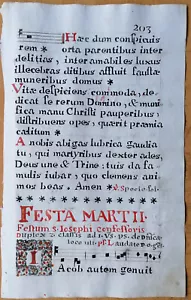 203
Hæc dum conspicuis
rem * orta parentibus inter
delitias, inter amabiles luxus
illecebras ditibus affluit faustæ
muneribus domus *
Vitæ despiciens commoda, de-
dicat se rerum Domino, & mu-
nificas manu Christi pauperibus
distribuens opes, quærit præmia
cælitum *
A nobis abigas lubrica gaudia
tu, qui martyribus dexter ades,
Deus une & Trine: tuis da famulis
iubar, quo clemens ani-
mos beas. Amen
FESTA MARTII
Festum S. Iosephi, Confessoris
duplex 2 classis ad I. VS. ps. de domi-
Iacob autem genuit